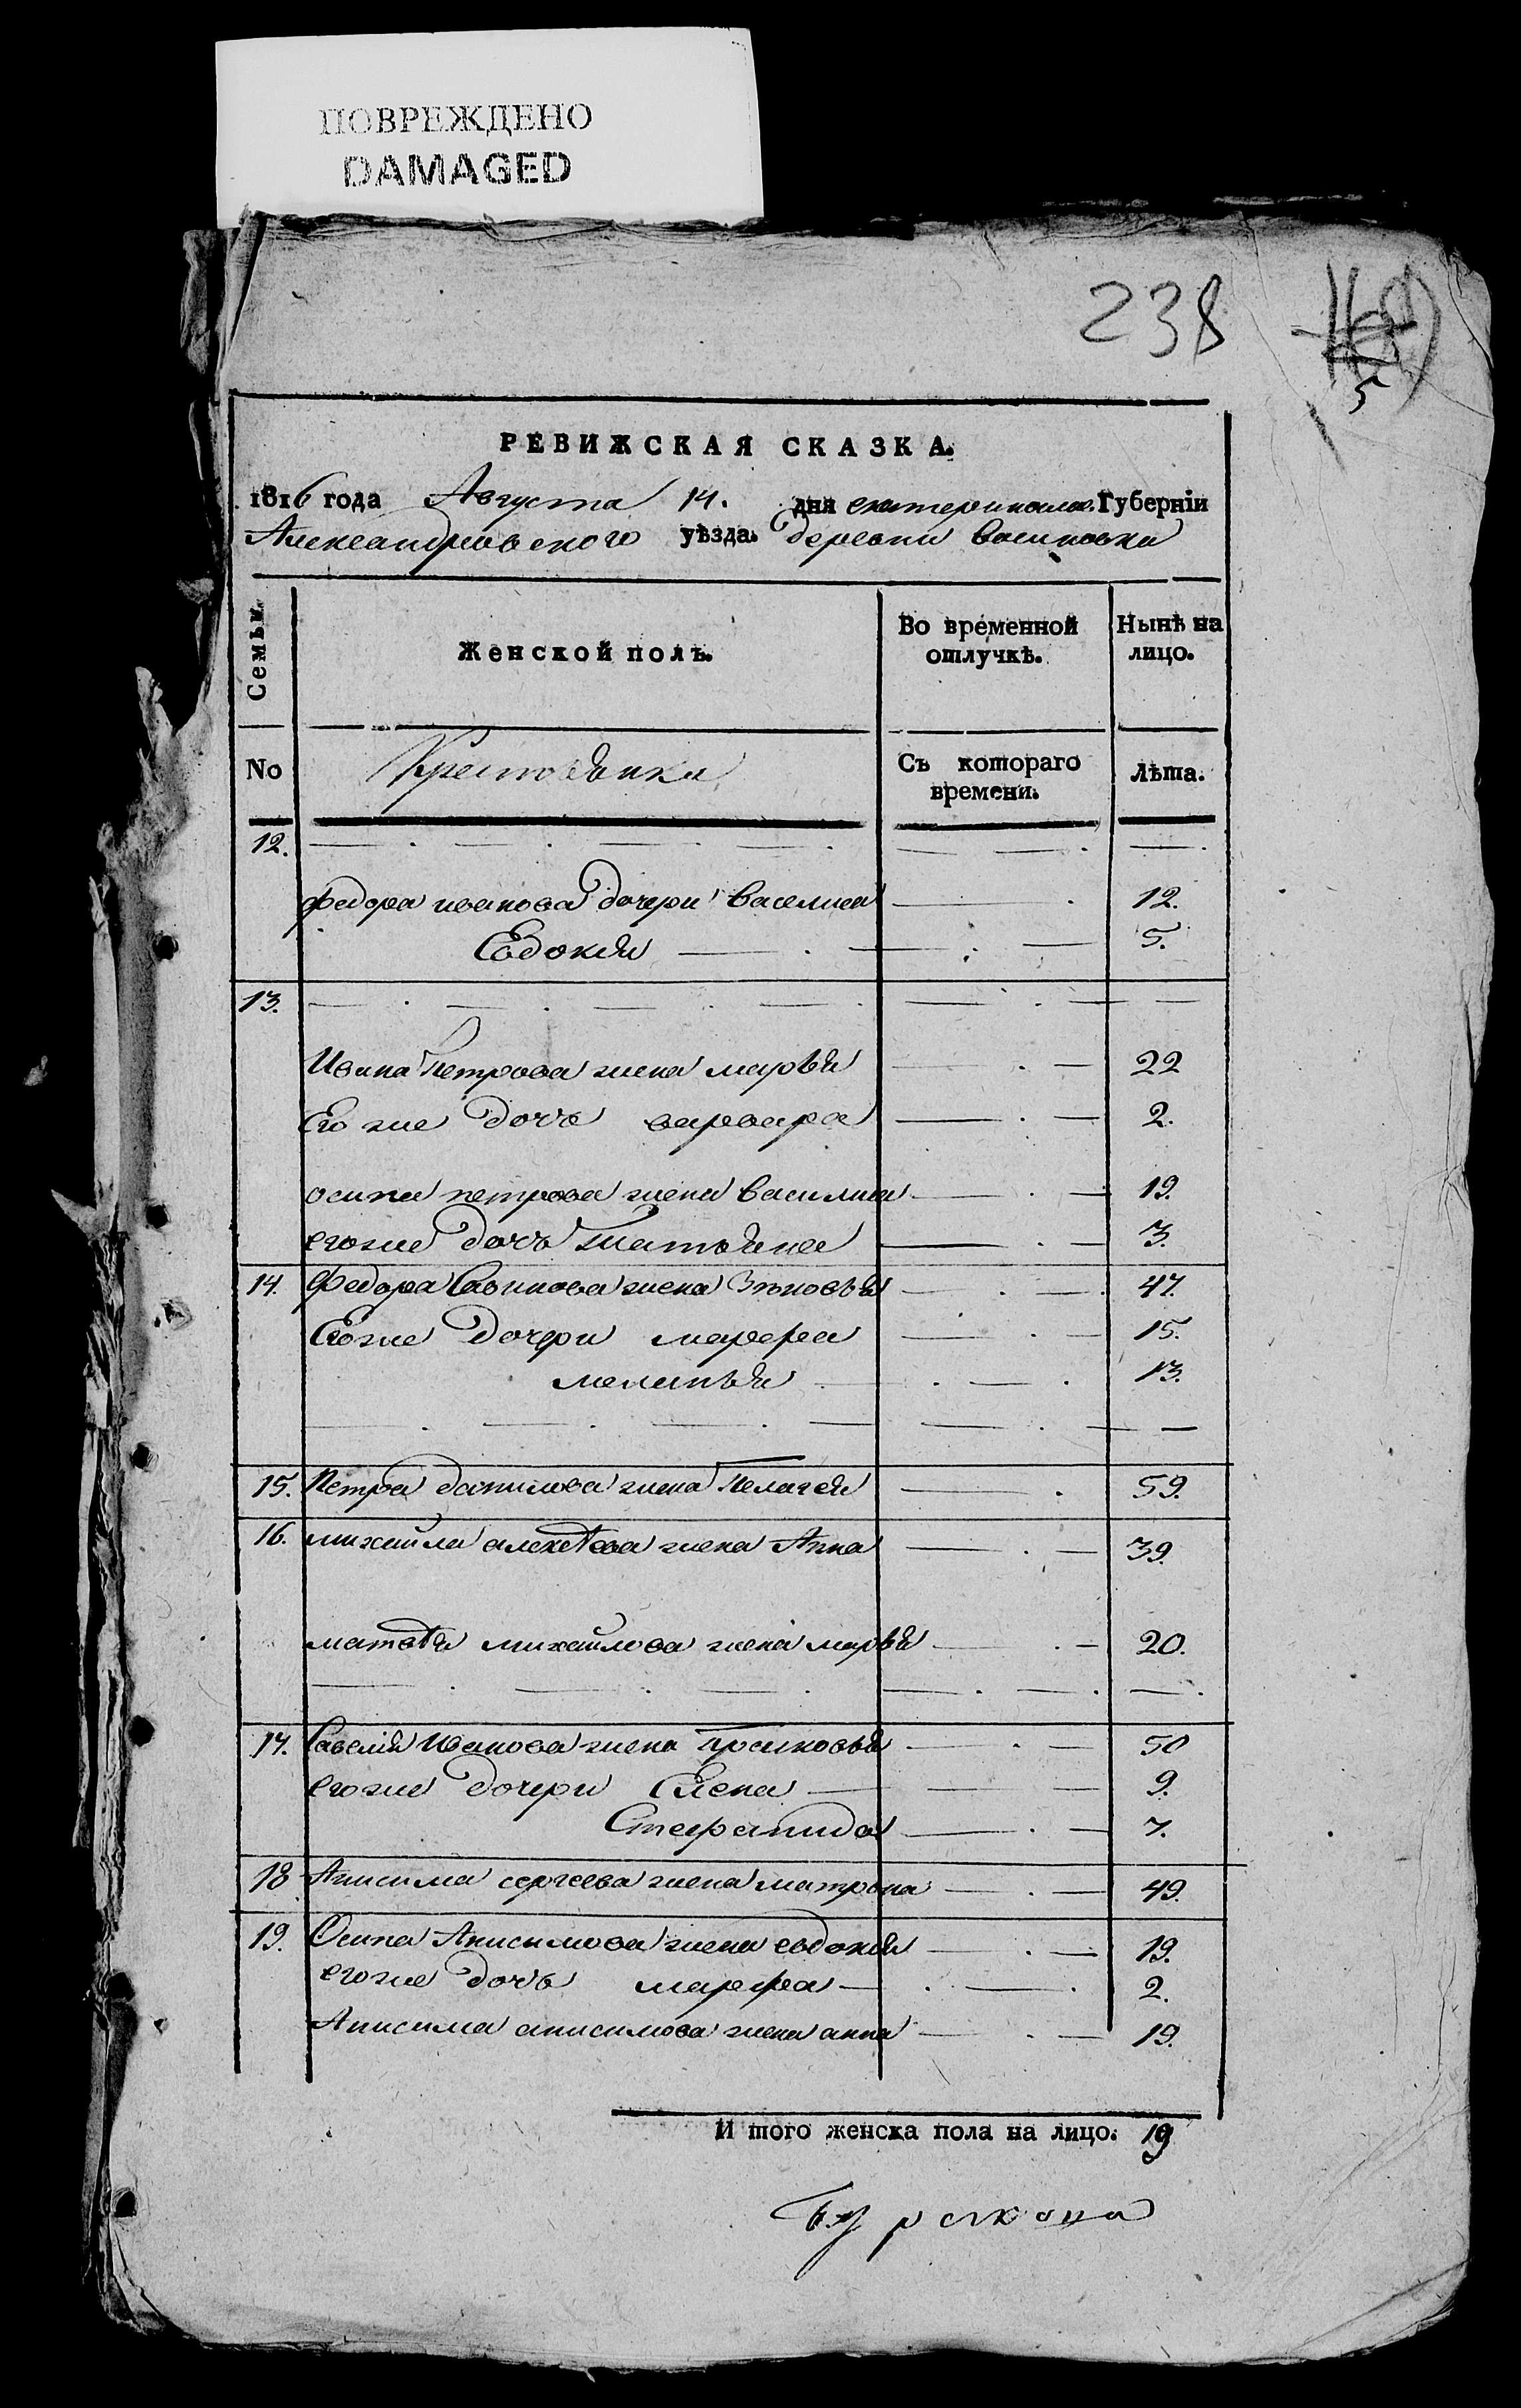 ПОВРЕЖДЕНО
DAMAGED
238
5
РЕВИЖСКАЯ СКАЗКА.
1816 года Августа 14. дня екатеринослав. Губерніи
Александровского уѣзда. деревни
Семьи.
Женской полъ.
Во временной отлучкѣ.
Нынѣ на лицо.
No
Крестьянки
Съ котораго времени.
Лѣта.
12.
федора иванова дочери василиса 12.
Евдокія 5.
13.
Ивана Петрова жена марья 22
Его же дочь варвара 2.
осипа петрова жена василиса 19.
его же дочь татьяна 3.
14. Федора Савинова жена Зѣновья 47.
Его же дочери марфа 15.
маланья 13.
15. Петра данилова жена Пелагея 59.
16. михайла алексѣева жена Анна 39.
матвѣя михайлова жена марья 20.
17. Савелія Иванова жена Прасковья 50
его же дочери Елена 9.
Степанида 7.
18 Анисима сергеева жена матрона 49.
19. Осипа Анисимова жена евдокія 19.
его же дочь марфа 2.
Анисима анисимова жена анна 19.
И того женска пола на лицо. 19